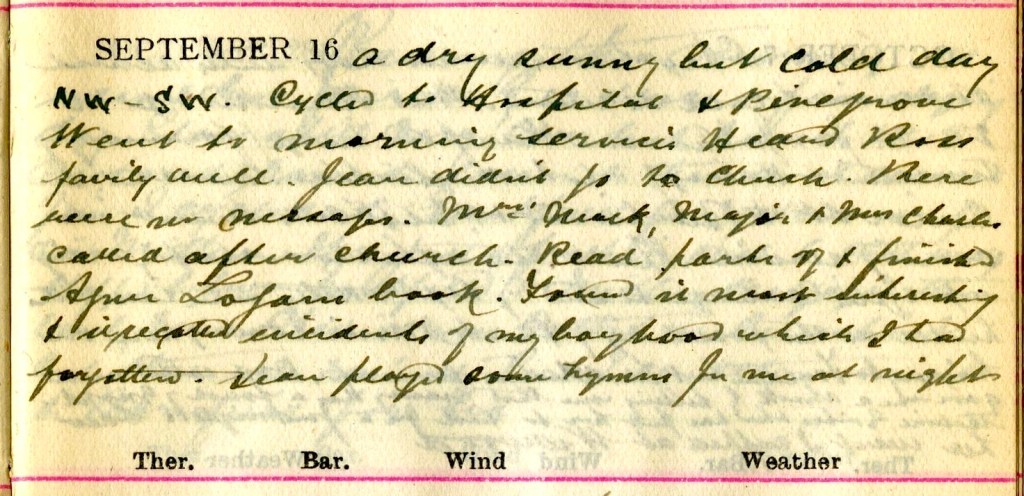 SEPTEMBER 16 a dry sunny but cold day
NW - SW. Cycled to Hospital & Pinegrove
Went to morning service Heard Ross
fairly well. Jean didn't go to Church. There
were no messages. Mrs Mack, Major & Mrs Charles
called after church. Read parts of & finished
Agnes Logan book. Found it most interesting
& it recalled incidents of my boyhood which I had
forgotten. Jean played some hymns for me at night
Ther. Bar. Wind Weather